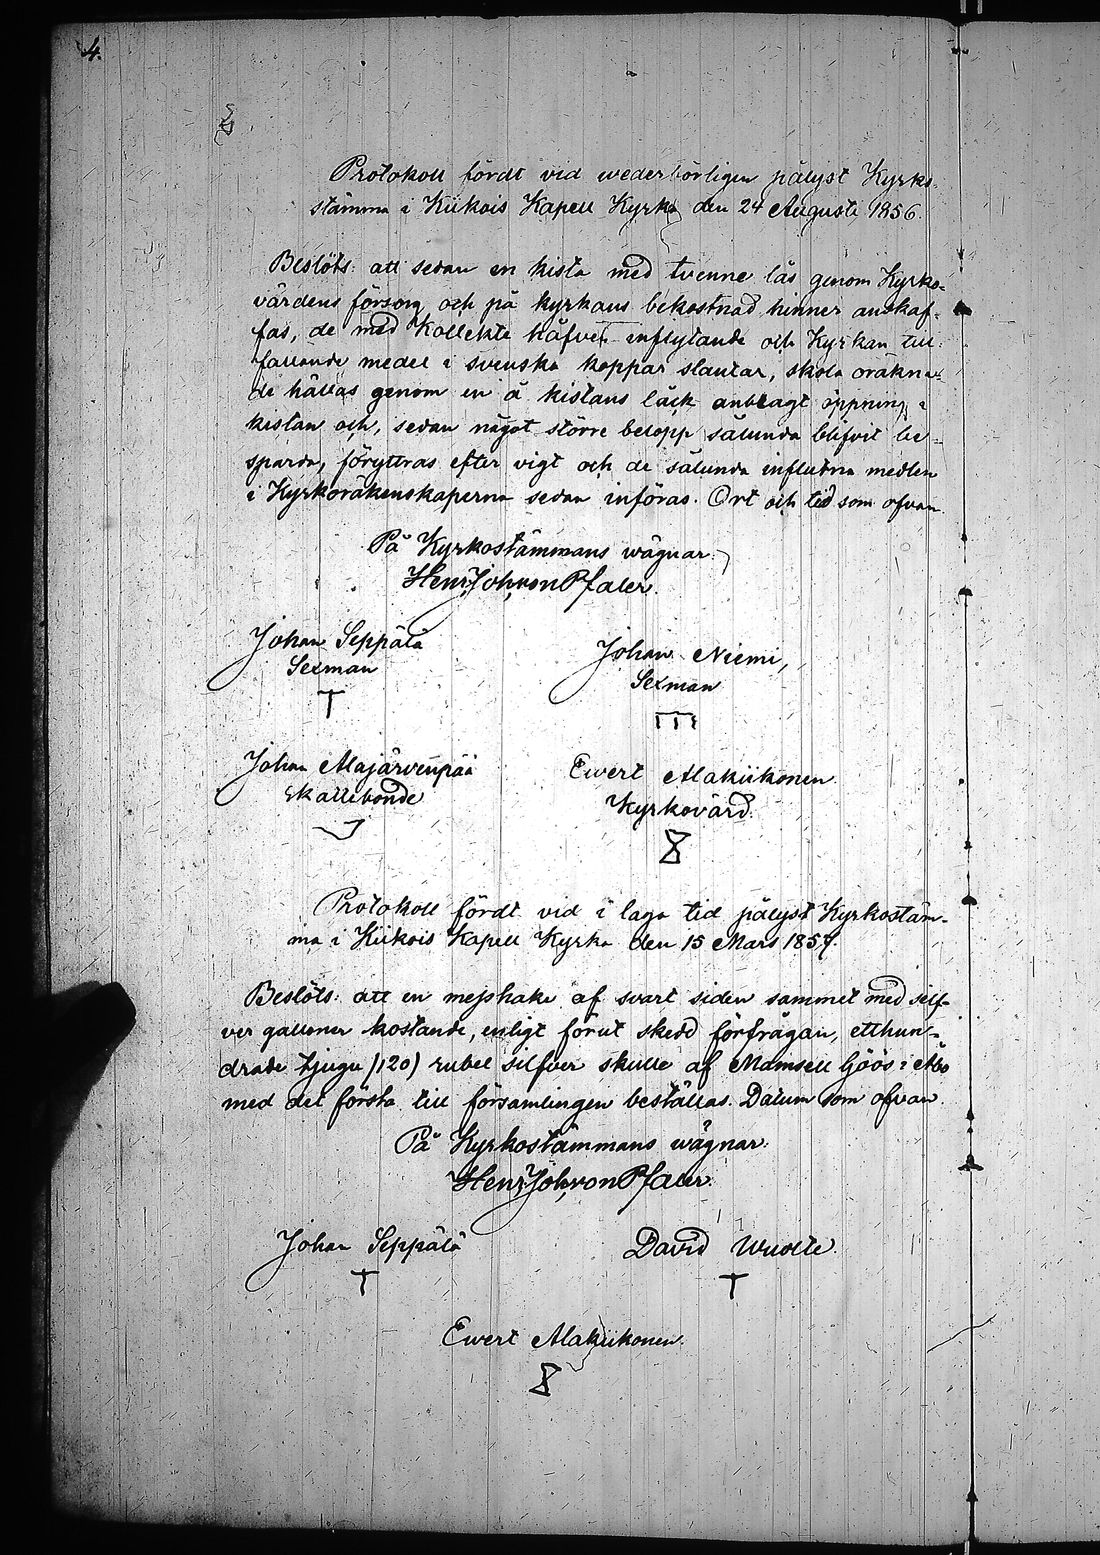 4.
Protokoll fördt vid wederbörligen pålyst Kyrko-
stämma i Kiikois Kapell Kyrka den 24 Augusti 1856.
Beslöts: att sedan en kista med tvenne lås genom Kyrko-
värdens försorg och på kyrkans bekostnad hinner anskaf-
fas, de med Kollekte håfven inflytande och Kyrkan till-
fallande medel i svenska koppar slantar, skola oräkna-
de hållas genom en å kistans låck anbragt öppning i
kistan och, sedan något större belopp sålunda blifvit be-
sparda, föryttras efter vigt och de sålunda influtna medlen
i Kyrkoräkenskaperna sedan införas. Ort och tid som ofvan
På Kyrkostämmans wägnar:
Henr. Joh. von Pfaler.
Johan Seppälä Johan Niemi,
Sexman Sexman
Johan Alajärvenpää Ewert Alakiikonen
Skallebonde Kyrkovärd.
Protokoll fördt vid i laga tid pålyst Kyrkostäm-
ma i Kiikois Kapell Kyrka den 15 Mars 1857.
Beslöts: att en messhake af svart siden sammet med silf-
ver galloner kostande, enligt förut skedd förfrågan, etthun-
drade tjugu (120) rubel silfver skulle af Mamsell Göös i Åbo
med det första till församlingen beställas. Datum som ofvan.
På Kyrkostämmans wägnar:
Henr. Joh. von Pfaler.
Johan Seppälä David Wuolle.
Ewert Alakiikonen.